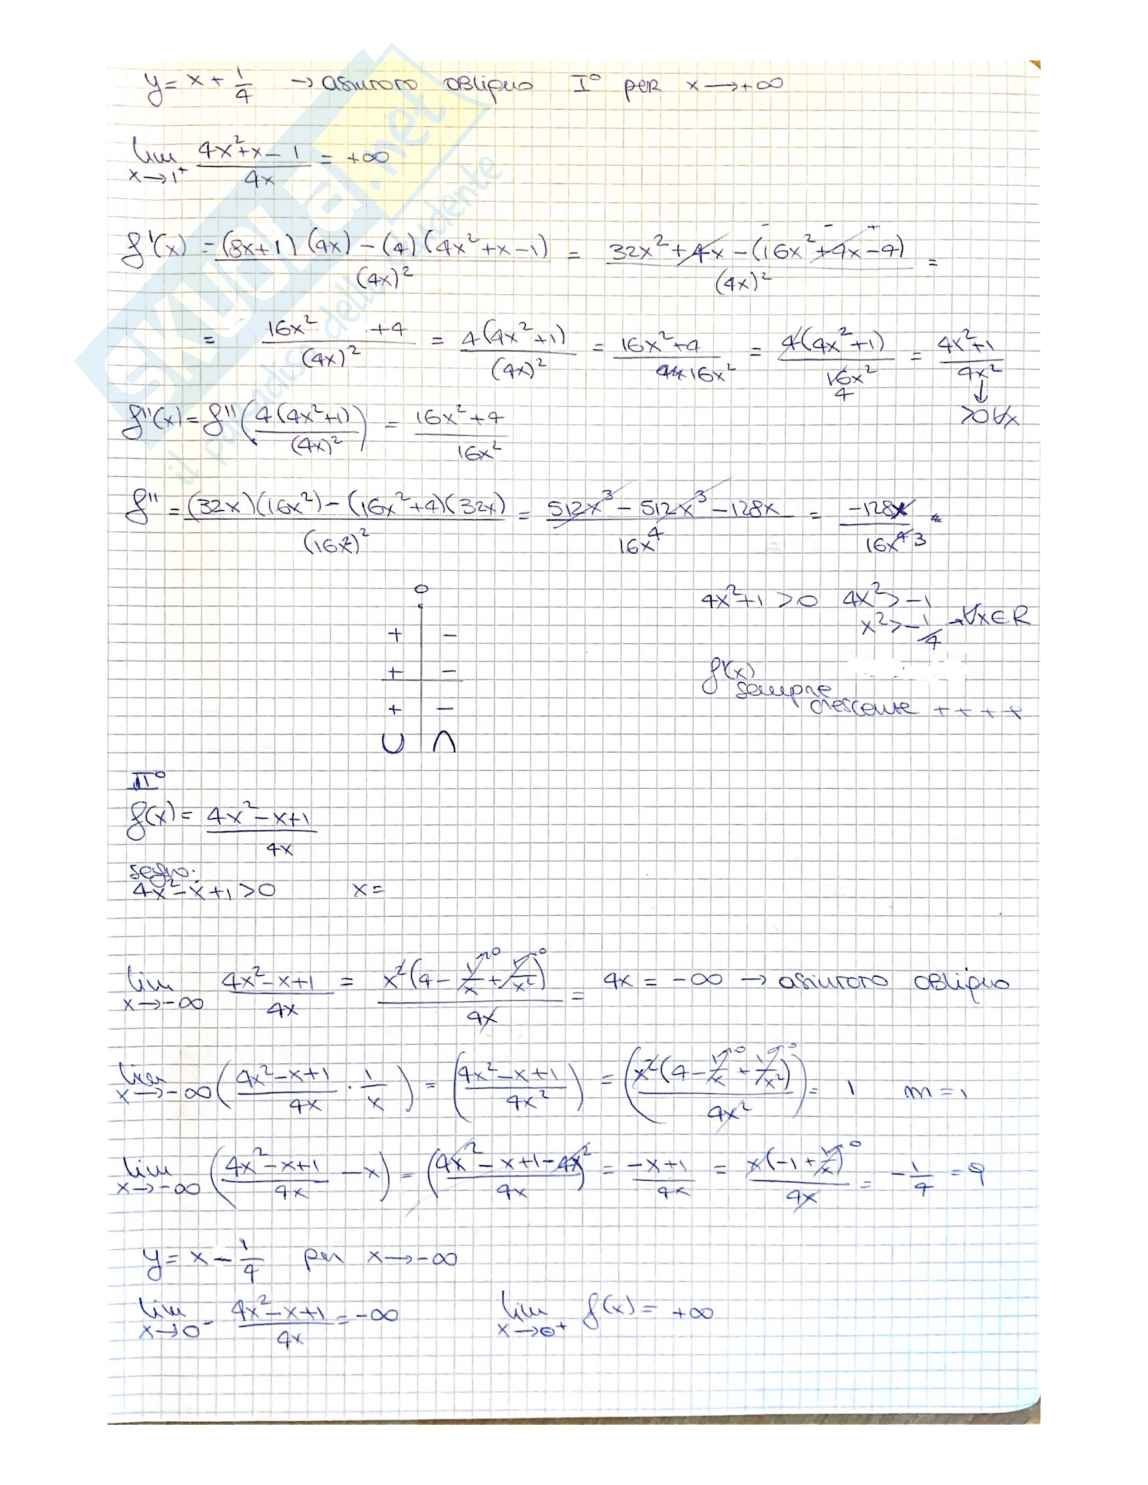 y = x + 1/4 → asintoto obliquo I° per x→+∞
lim x→1⁺ (4x²+x-1)/(4x) = +∞
f'(x) = ((8x+1)(4x) - (4)(4x²+x-1))/(4x)² = (32x²+4x-(16x²+4x-4))/(4x)² =
= (16x² +4)/(4x)² = 4(4x²+1)/(4x)² = (16x²+4)/(16x²) = 4(4x²+1)/(16x²) = (4x²+1)/(4x²)
4
↓
>0 ∀x
f''(x) = f''(4(4x²+1)/(4x)²) = (16x²+4)/(16x²)
f'' = ((32x)(16x²)-(16x²+4)(32x))/(16x²)² = (512x³-512x³-128x)/(16x⁴) = (-128x)/(16x⁴ 3)
0
4x²+1>0 4x²>-1
+ - x²>-1/4 → ∀x∈R
+ - f'(x)
sempre
crescente + + + +
+ -
∪ ∩
II°
f(x) = (4x²-x+1)/(4x)
segno:
4x²-x+1>0 x=
lim x→-∞ (4x²-x+1)/(4x) = x²(4-1/x+1/x²)/(4x) = 4x = -∞ → asintoto obliquo
→0 →0
lim x→-∞ ((4x²-x+1)/(4x) · 1/x) = ((4x²-x+1)/(4x²)) = (x²(4-1/x+1/x²)/(4x²)) = 1 m=1
→0 →0
lim x→-∞ ((4x²-x+1)/(4x) - x) = ((4x²-x+1-4x²)/(4x)) = (-x+1)/(4x) = x(-1+1/x)/(4x) = -1/4 = q
→0
y = x - 1/4 per x→-∞
lim x→0⁻ (4x²-x+1)/(4x) = -∞ lim x→0⁺ f(x) = +∞
SKUOLA.net